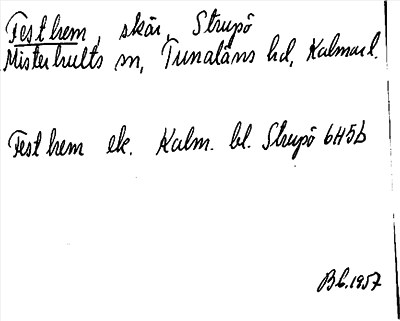 Festhem, skär, Strupö
Misterhults sn, Tunaläns hd, Kalmar l.
Festhem ek. Kalm. bl. Strupö 6H5b
Bb. 1957